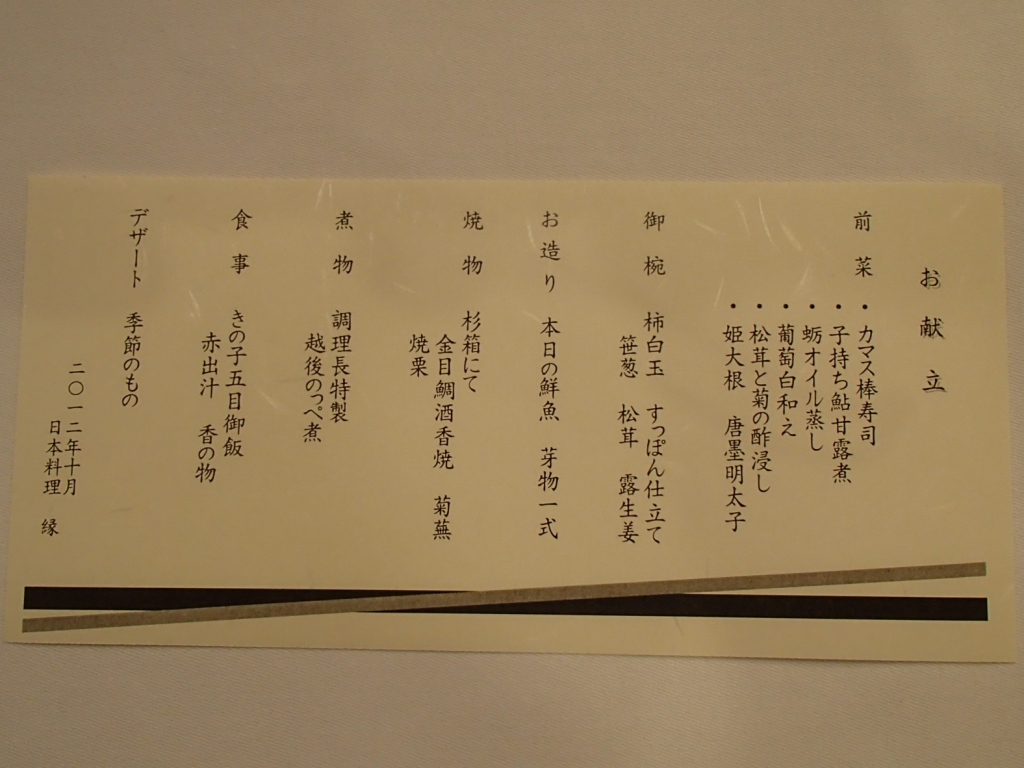 お献立
前菜
・カマス棒寿司
・子持ち鮎甘露煮
・蛎オイル蒸し
・葡萄白和え
・松茸と菊の酢浸し
・姫大根　唐墨明太子
御椀　柿白玉　すっぽん仕立て
笹葱　松茸　露生姜
お造り　本日の鮮魚　芽物一式
焼物　杉箱にて
金目鯛酒香焼　菊蕪
焼栗
煮物　調理長特製
越後のっぺ煮
食事　きの子五目御飯
赤出汁　香の物
デザート　季節のもの
二〇一二年十月
日本料理　縁